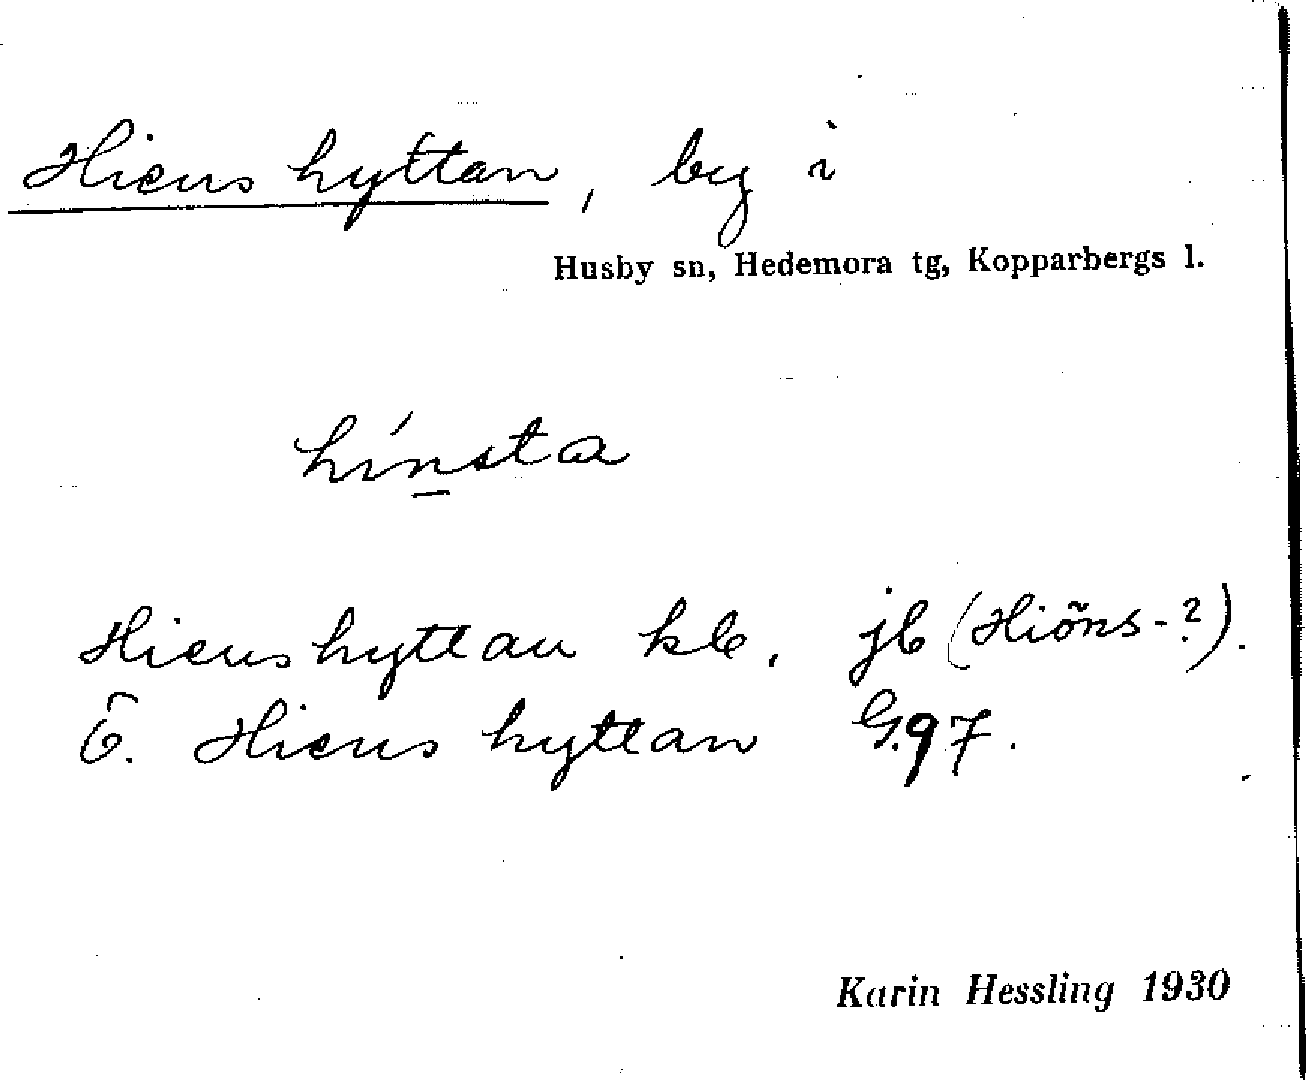 Hienshyttan, by i
Husby sn, Hedemora tg, Kopparbergs l.
hínsta
Hienshyttan kb, jb (Hiöns-?).
Ö. Hienshyttan G.97.
Karin Hessling 1930